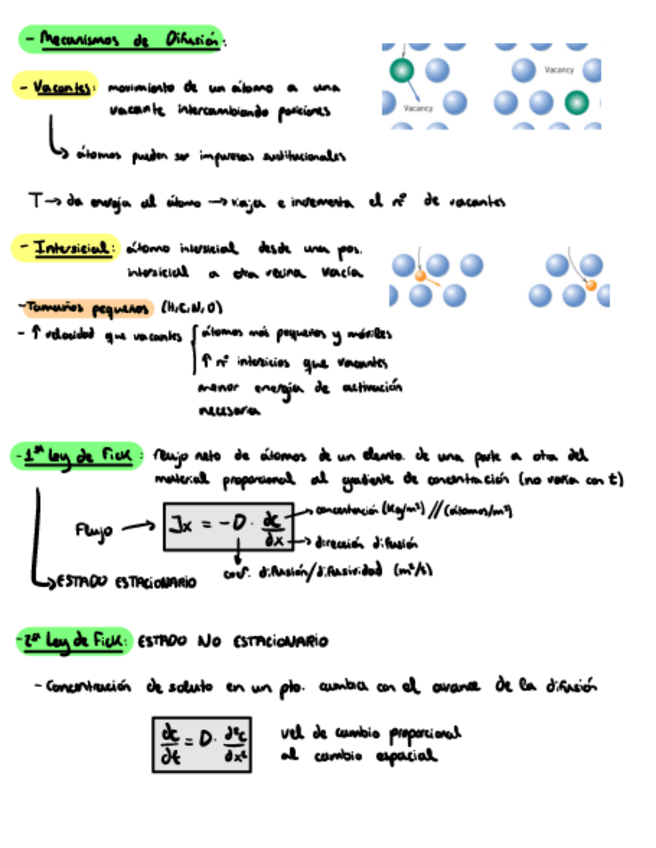 - Mecanismos de Difusión:
- Vacantes: movimiento de un átomo a una
vacante intercambiando posiciones
Vacancy
Vacancy
↳ átomos pueden ser impurezas sustitucionales
T → da energía al átomo → viaja e incrementa el nº de vacantes
- Intersicial: átomo intersicial desde una pos.
intersicial a otra vecina vacía
- Tamaños pequeños (H, C, N, O)
- ↑ velocidad que vacantes { átomos más pequeños y móviles
↑ nº intersicios que vacantes
menor energía de activación
necesaria
- 1ª Ley de Fick: flujo neto de átomos de un elemto. de una parte a otra del
material proporcional al gradiente de concentración (no varía con t)
Flujo → Jx = -D · dc/dx
→ concentración (Kg/m³) // (átomos/m³)
→ dirección difusión
coef. difusión/difusividad (m²/s)
↳ ESTADO ESTACIONARIO
- 2ª Ley de Fick: ESTADO NO ESTACIONARIO
- Concentración de soluto en un pto. cambia con el avance de la difusión
dc/dt = D · d²c/dx² vel de cambio proporcional
al cambio espacial